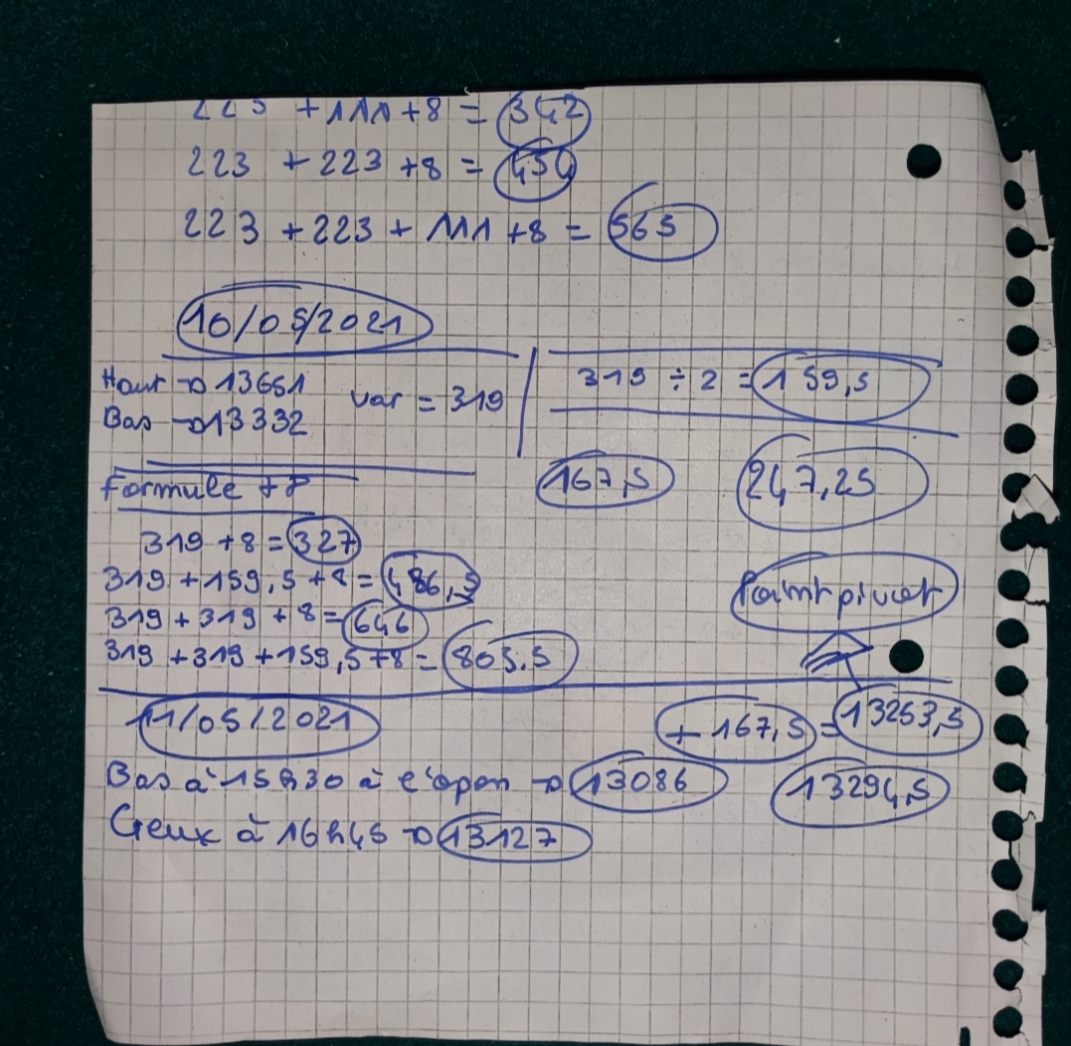 223 + 111 + 8 = 342
223 + 223 + 8 = 454
223 + 223 + 111 + 8 = 565
10/05/2021
Haut → 13651
Bas → 13332
Var = 319
319 ÷ 2 = 159,5
167,5
247,25
Formule + 8
319 + 8 = 327
319 + 159,5 + 8 = 486,5
319 + 319 + 8 = 646
319 + 319 + 159,5 + 8 = 805,5
Point pivot
11/05/2021
+ 167,5 = 13253,5
Bas à 15h30 à l'open → 13086
13294,5
Creux à 16h45 → 13127